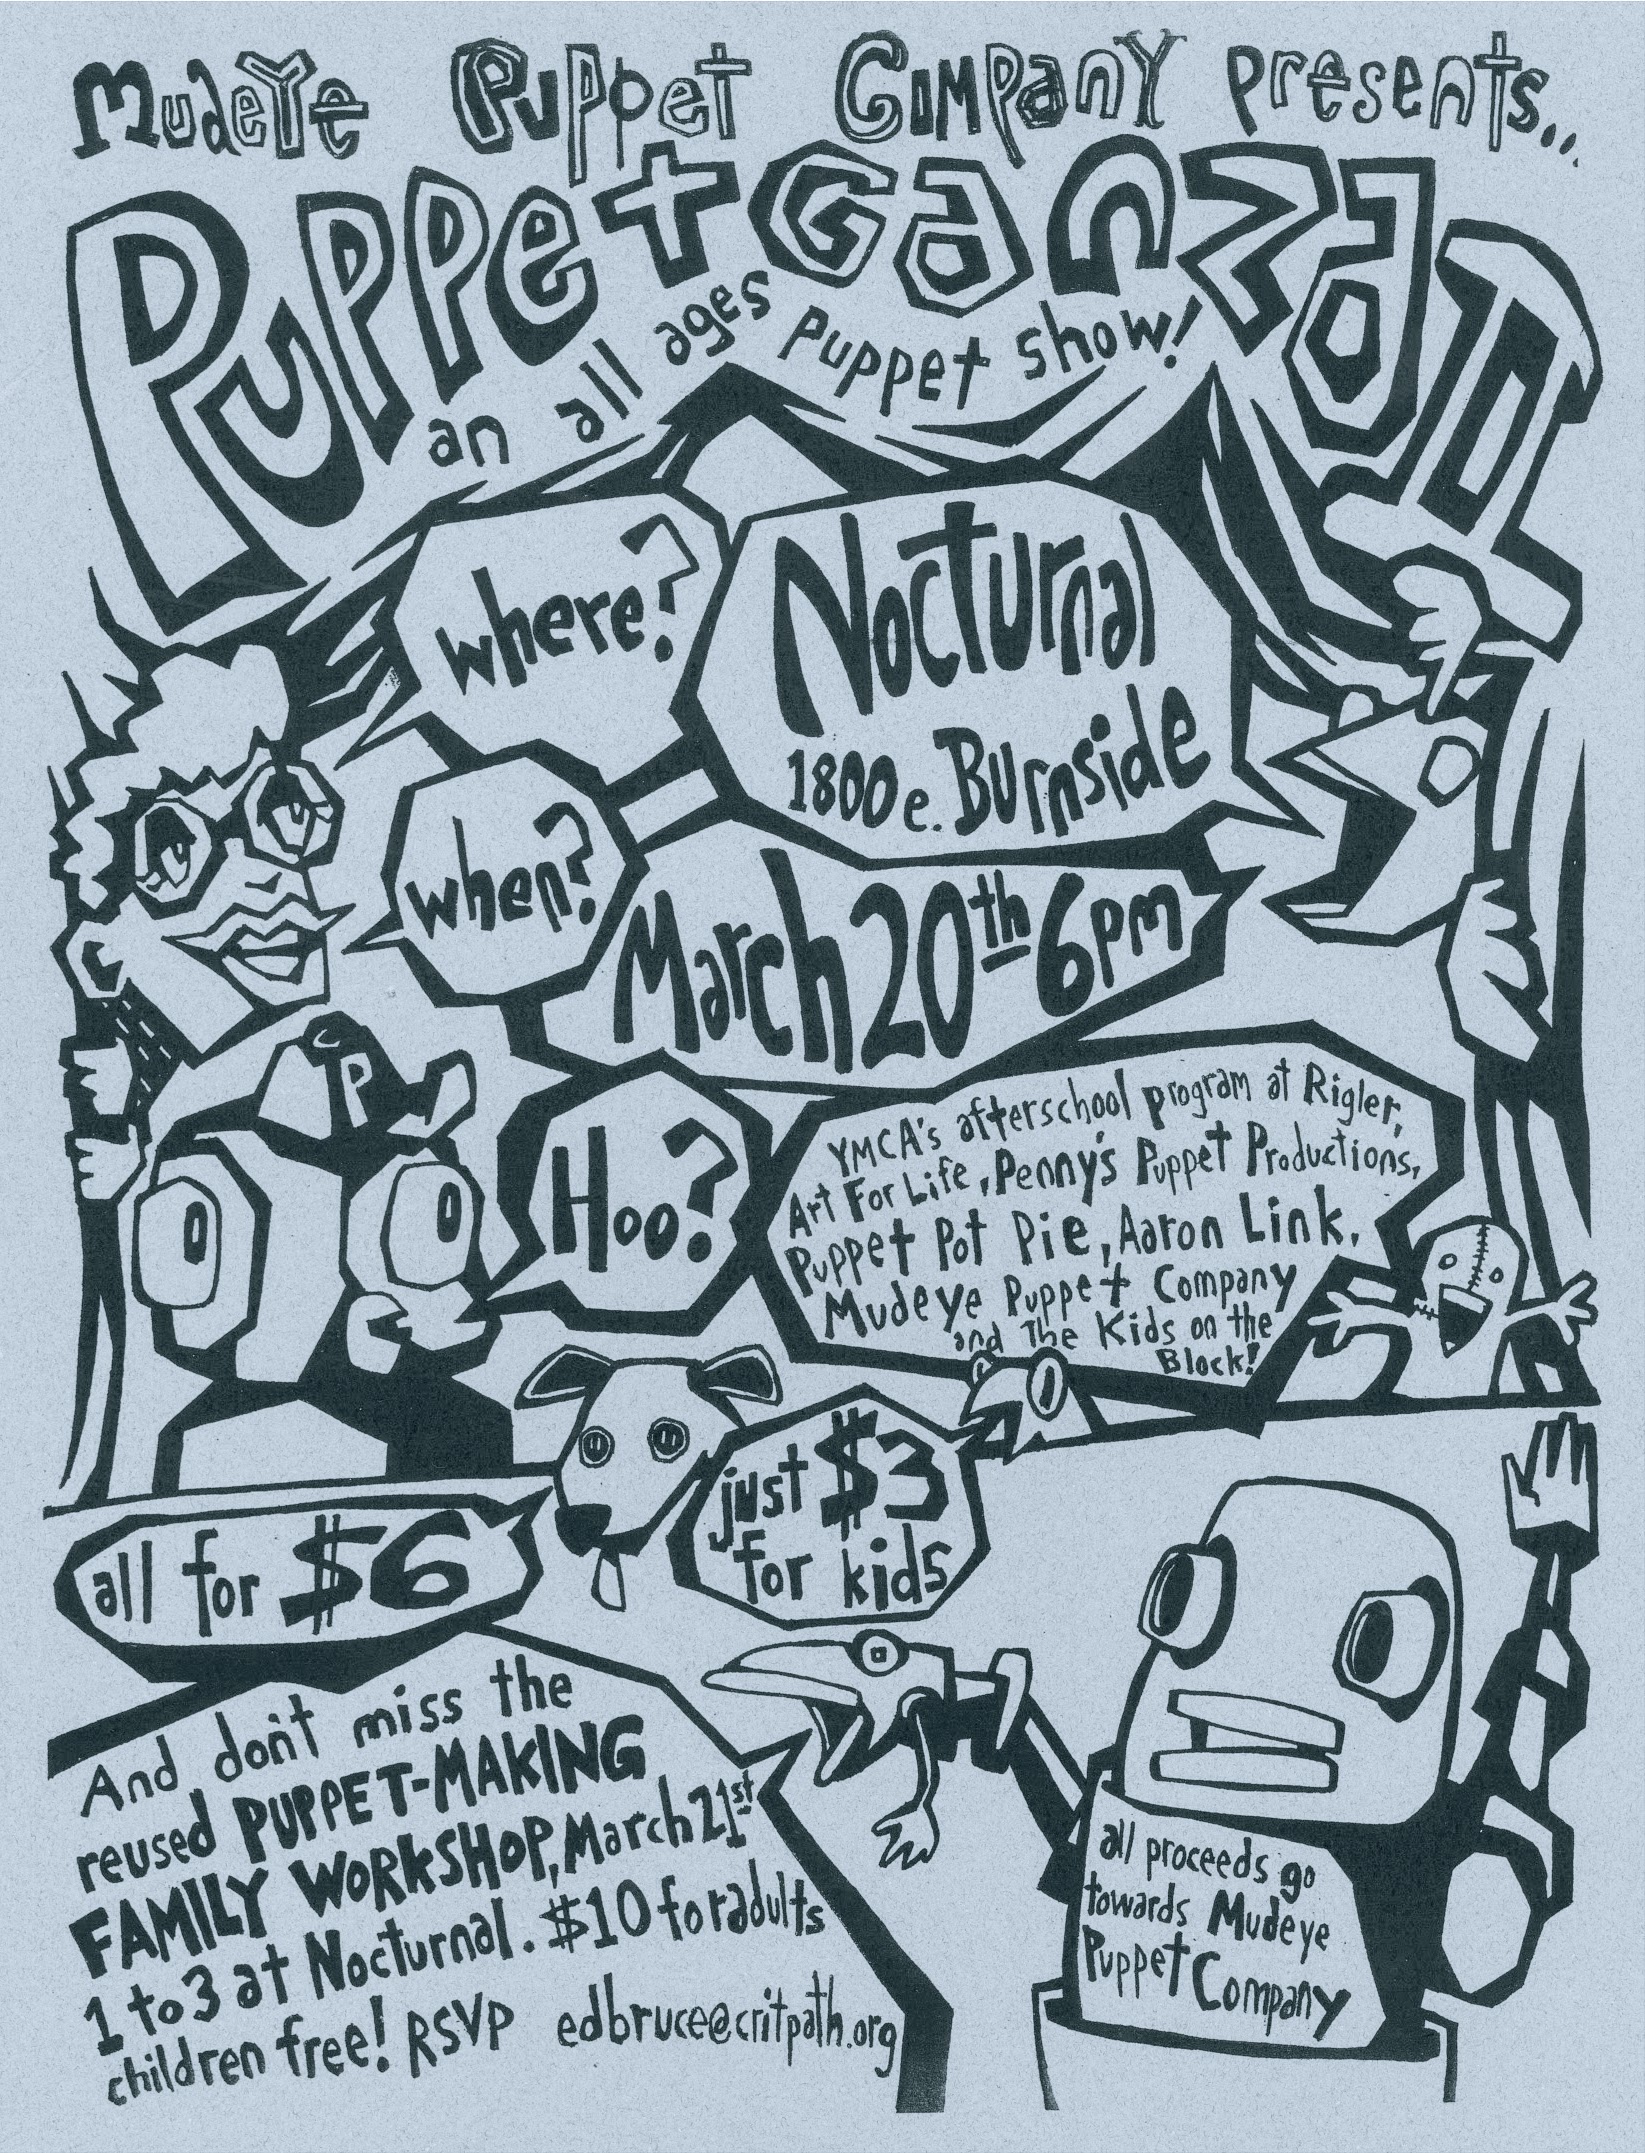 Mudeye Puppet Company presents...
PuppetGanza II
an all ages puppet show!
where?
Nocturnal
1800 e. Burnside
when?
March 20th 6pm
P
Hoo?
YMCA's afterschool program at Rigler,
Art For Life, Penny's Puppet Productions,
Puppet Pot Pie, Aaron Link,
Mudeye Puppet Company
and The Kids on the
Block!
all for $6
just $3
for kids
And don't miss the
reused PUPPET-MAKING
FAMILY WORKSHOP, March 21st
1 to 3 at Nocturnal. $10 for adults
children free! RSVP edbruce@critpath.org
all proceeds go
towards Mudeye
Puppet Company